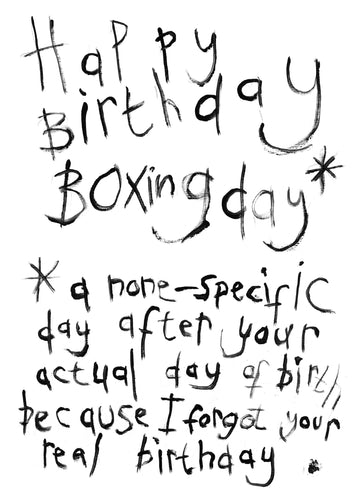 Happy
Birthday
BOxing day*
* a none-specific
day after your
actual day of birth
because I forgot your
real birthday.